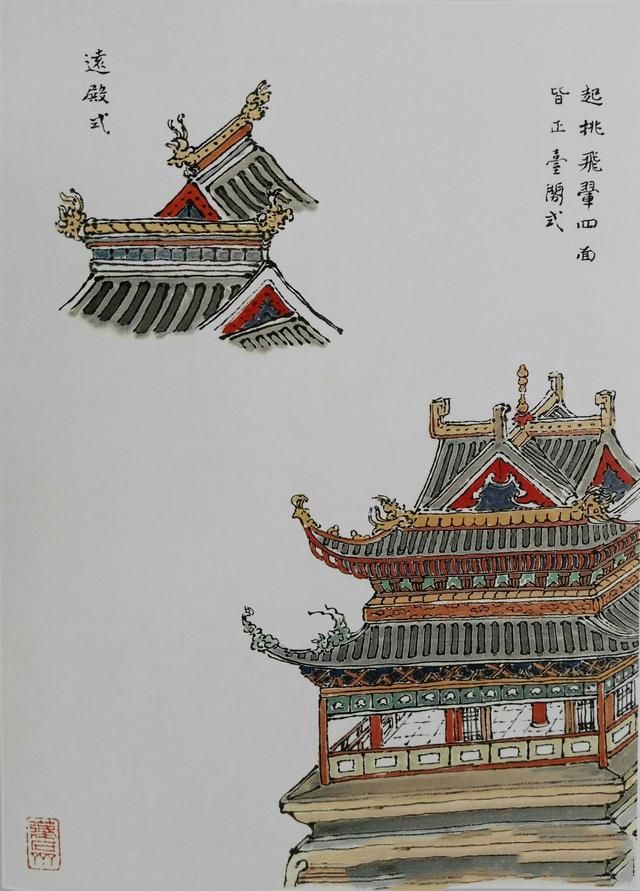 起挑飛翬四面
皆正臺閣式
遠殿式